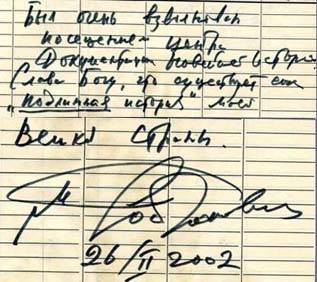 Был очень взволнован
посещением Центра
Документации новейшей истории.
Слава Богу, что существует еще
"Подлинная история" моей
Великой страны.
26/II 2002